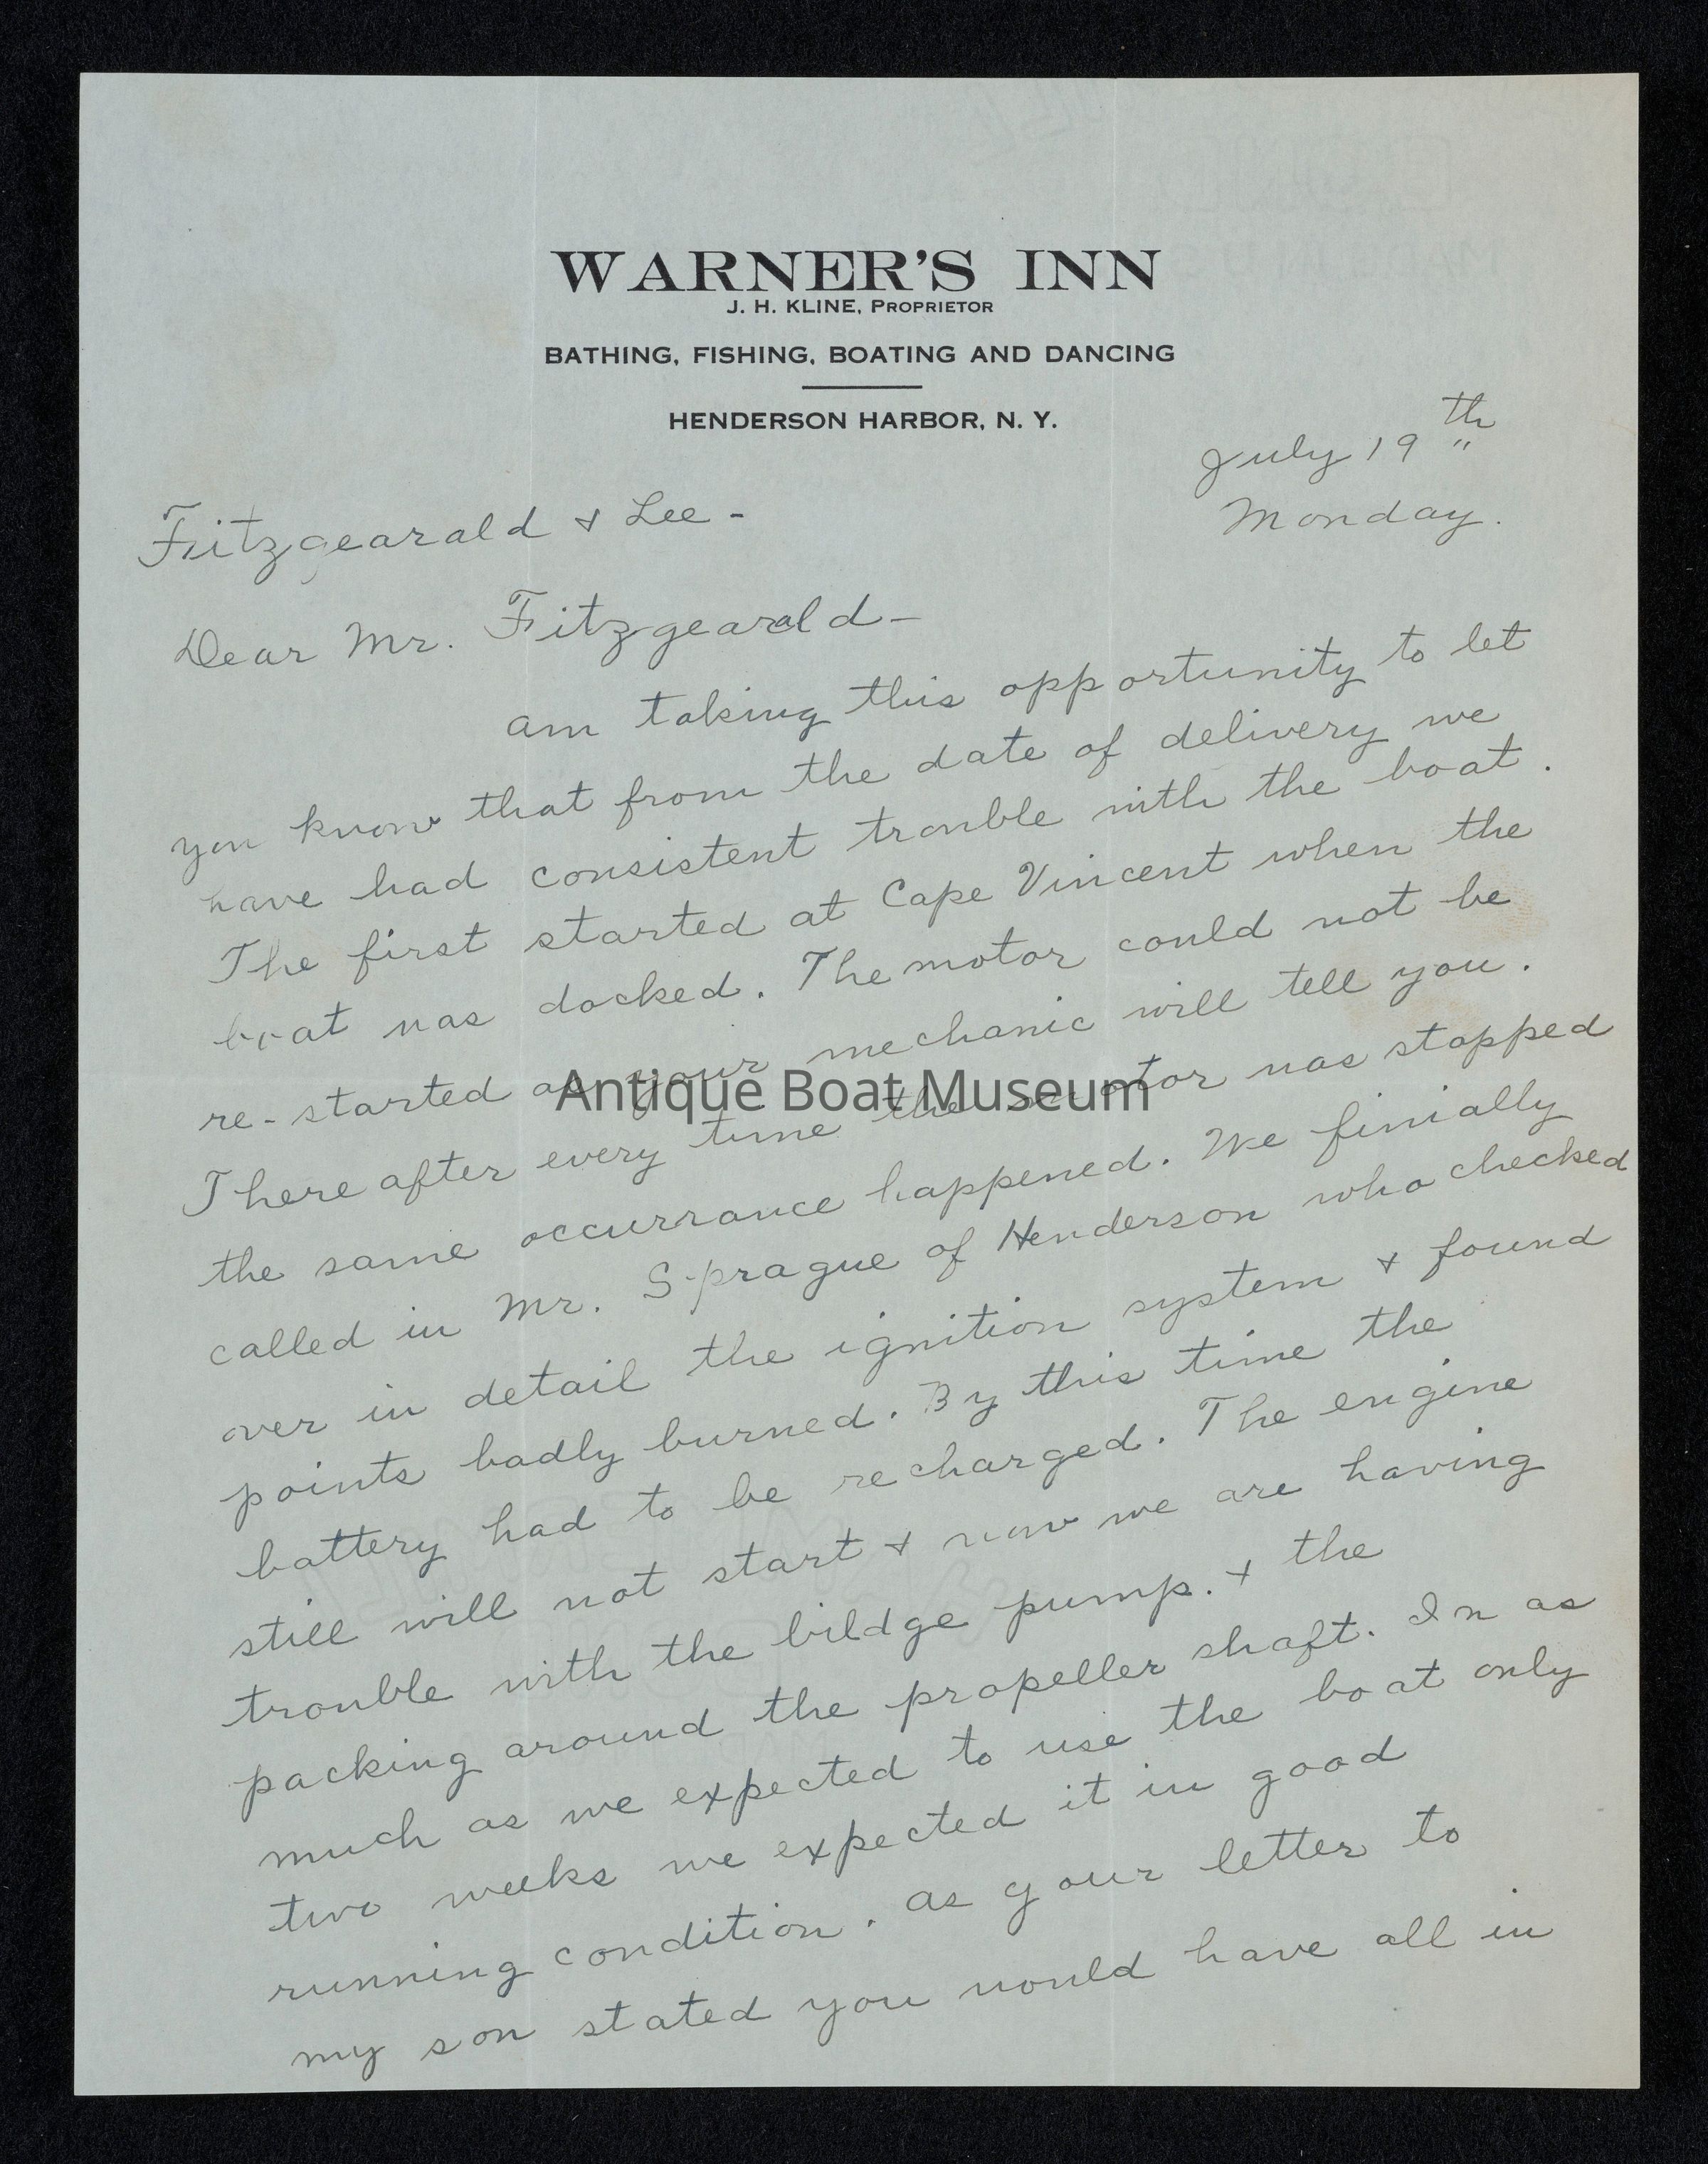 WARNER'S INN
J. H. KLINE, PROPRIETOR
BATHING, FISHING, BOATING AND DANCING
HENDERSON HARBOR, N. Y.
July 19th "
Monday.
Fitzgearald & Lee -
Dear Mr. Fitzgearald -
am taking this opportunity to let
you know that from the date of delivery we
have had consistent trouble with the boat.
The first started at Cape Vincent when the
boat was docked. The motor could not be
re-started as your mechanic will tell you.
There after every time the motor was stopped
the same occurrance happened. We finially
called in Mr. Sprague of Henderson who checked
over in detail the ignition system & found
points badly burned. By this time the
battery had to be recharged. The engine
still will not start & now we are having
trouble with the bildge pump. & the
packing around the propeller shaft. In as
much as we expected to use the boat only
two weeks we expected it in good
running condition. as your letter to
my son stated you would have all in
Antique Boat Museum